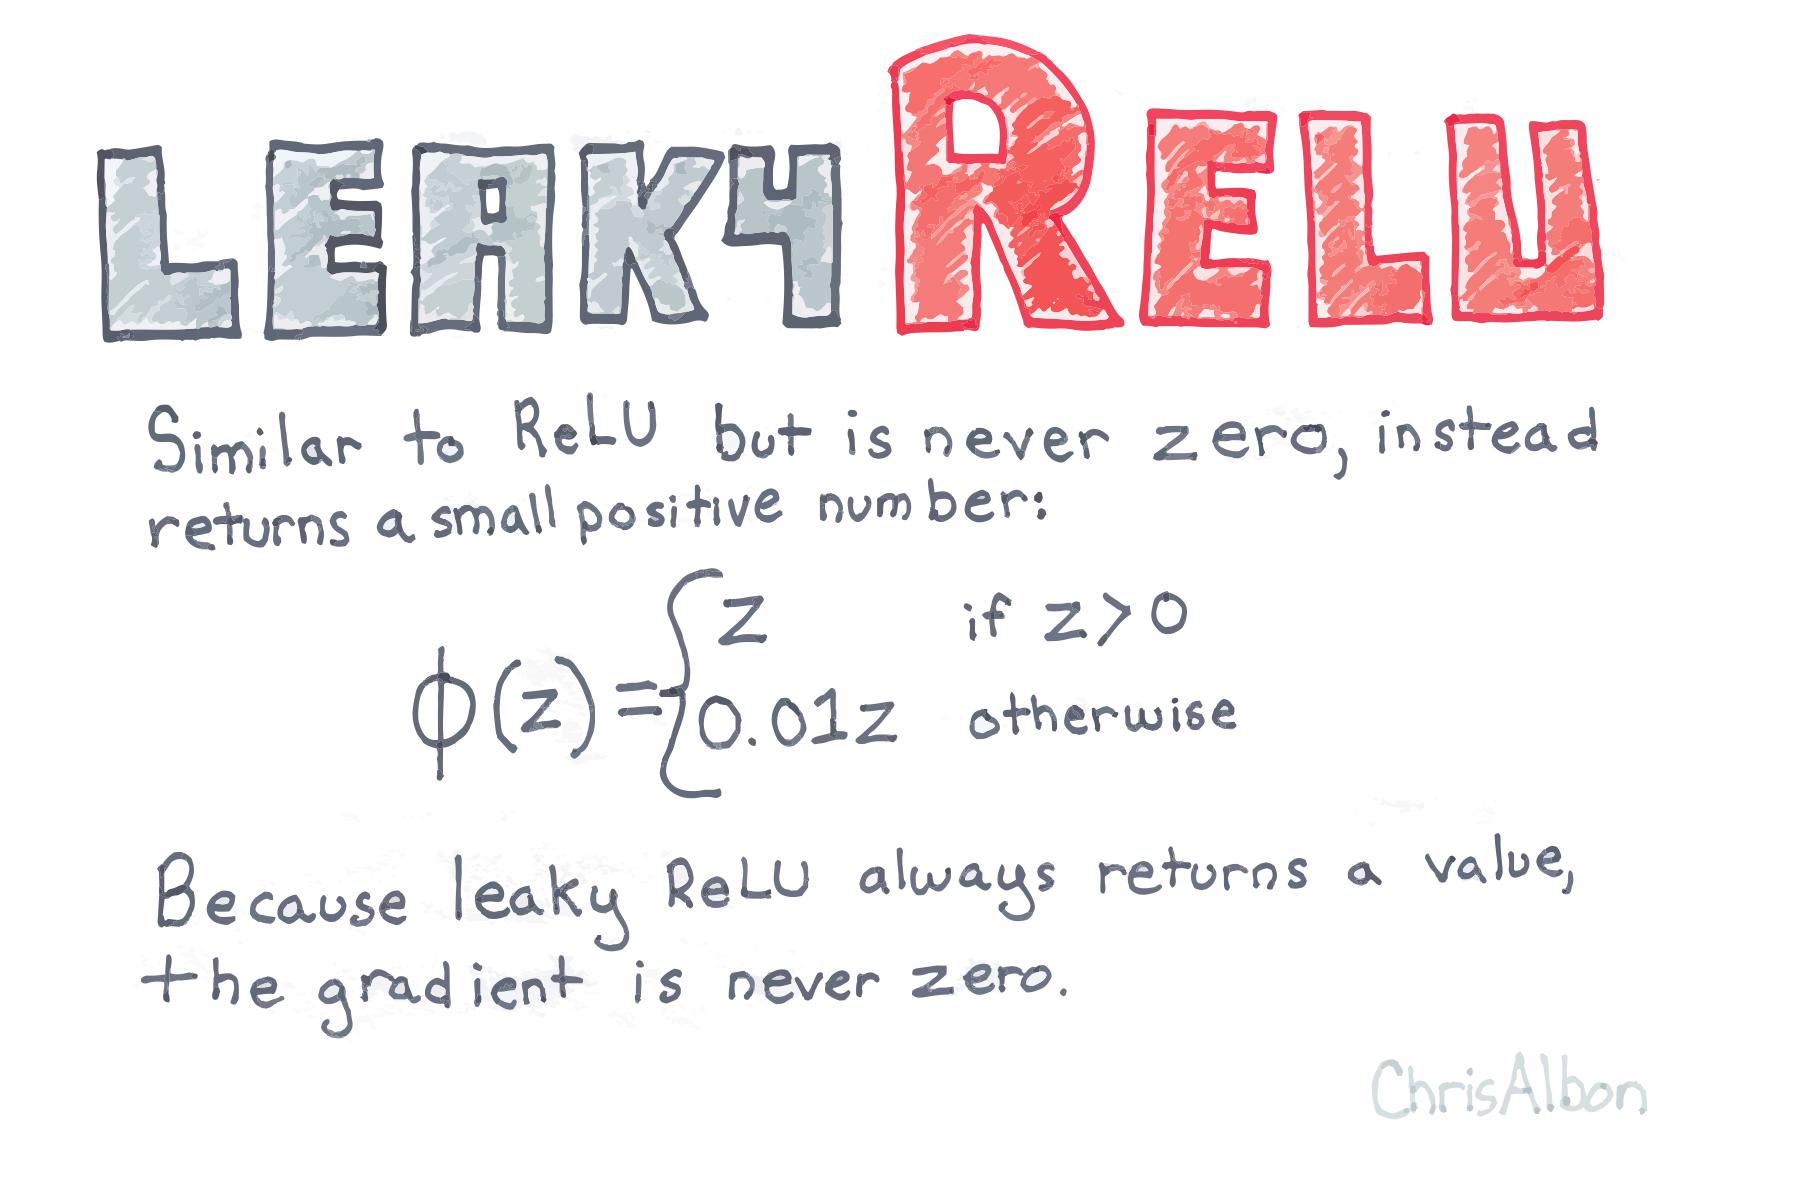 LEAKY RELU
Similar to ReLU but is never zero, instead
returns a small positive number:
z if z>0
ϕ(z)={
0.01z otherwise
Because leaky ReLU always returns a value,
the gradient is never zero.
ChrisAlbon